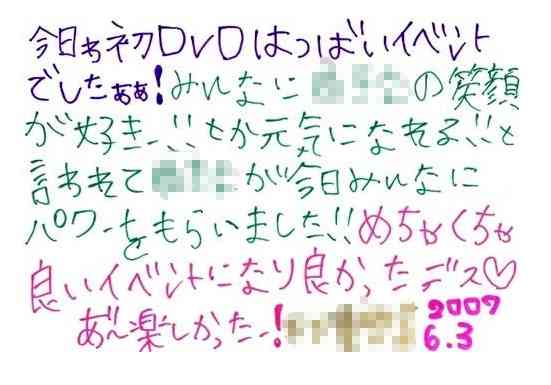 今日ゎ初DVDはつばいイベント
でしたぁぁ!みんなに の笑顔
が好きー!!とか元気になれる!!と
言われて が今日みんなに
パワーをもらいました!!めちゃくちゃ
良いイベントになり良かったデス♡
あ〜楽しかったー! 2009
6.3